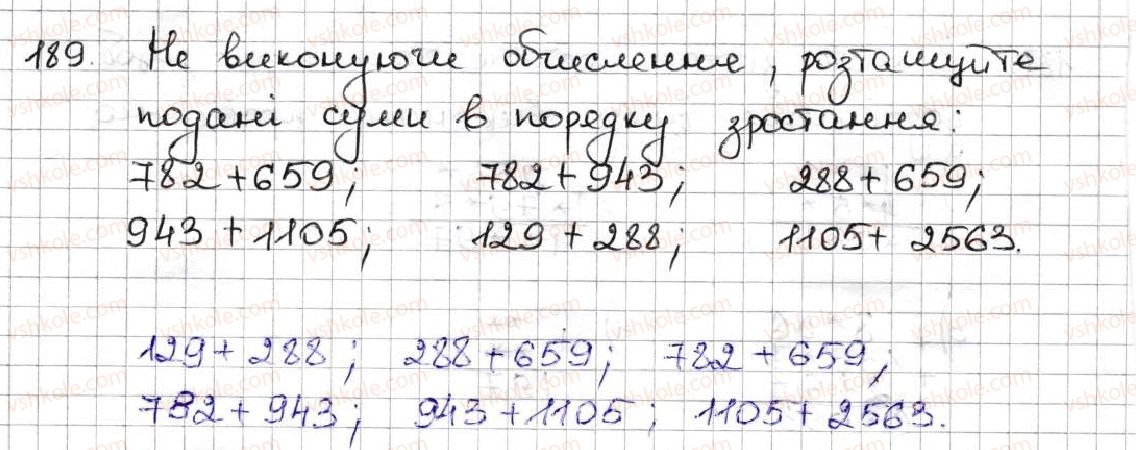 189. Не виконуючи обчислення, розташуйте
подані суми в порядку зростання:
782 + 659; 782 + 943; 288 + 659;
943 + 1105; 129 + 288; 1105 + 2563.
129 + 288; 288 + 659; 782 + 659;
782 + 943; 943 + 1105; 1105 + 2563.